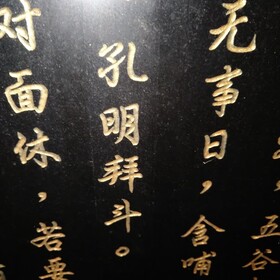 五谷
无事日，含哺
孔明拜斗。
对面休，若要